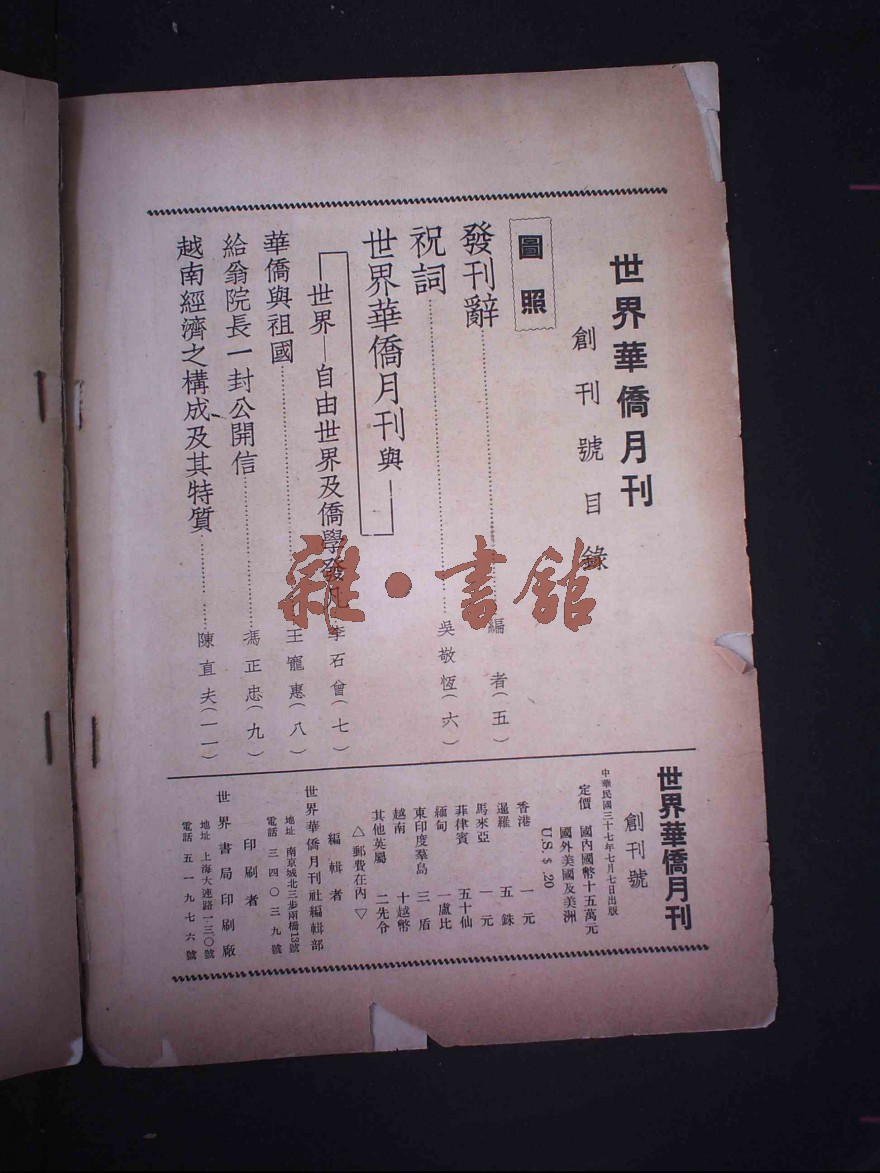 世界華僑月刊
創刊號目錄
圖照
發刊辭 編者(五)
祝詞 吳敬恆(六)
世界華僑月刊與
世界—自由世界及僑學發凡 李石曾(七)
華僑與祖國 王寵惠(八)
給翁院長一封公開信 馮正忠(九)
越南經濟之構成及其特質 陳直夫(一一)
世界華僑月刊
創刊號
中華民國三十七年七月七日出版
定價 國內國幣十五萬元
國外美國及美洲
U.S. $ .20
香港 一元
暹羅 五銖
馬來亞 一元
菲律賓 五十仙
緬甸 一盧比
東印度羣島 三盾
越南 十越幣
其他英屬 二先令
△郵費在內▽
編輯者
世界華僑月刊社編輯部
地址 南京城北三步兩橋13號
電話 三四〇三九號
印刷者
世界書局印刷廠
地址 上海大連路一三〇號
電話 五一九七六號
雜·書館